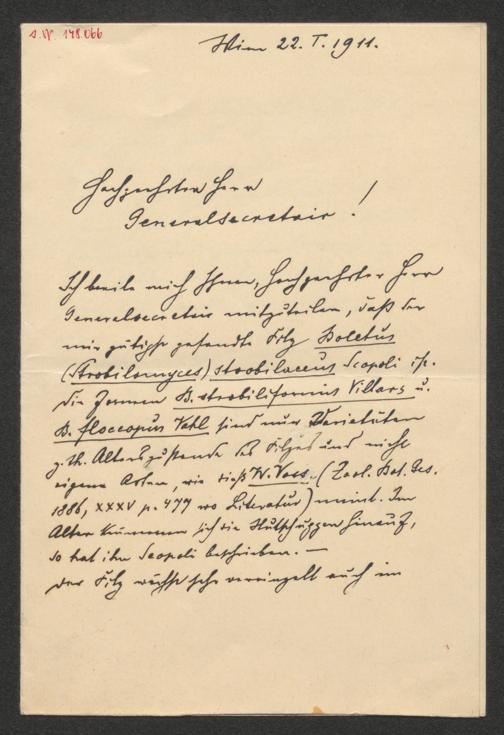 s. N° 148.066
Wien 22. I. 1911.
Hochgeehrter Herr
Generalsecretair!
Ich beeile mich Ihnen, Hochgeehrter Herr
Generalsecretair mitzuteilen, daß der
mir gütigst gesandte Pilz Boletus
(Strobilomyces) strobilaceus Scopoli ist.
Die Formen B. strobiliformis Villars u.
B. floccopus Vahl sind nur Varietäten
z. Th. Alterszustände des Pilzes und nicht
eigene Arten, wie dieß W. Voss (Zool. Bot. Ges.
1886, XXXV p. 477 wo Literatur) meint. Im
Alter krümmen sich die Hutschuppen hinauf,
so hat ihn Scopoli beschrieben. —
Der Pilz wächst sehr vereinzelt auch im